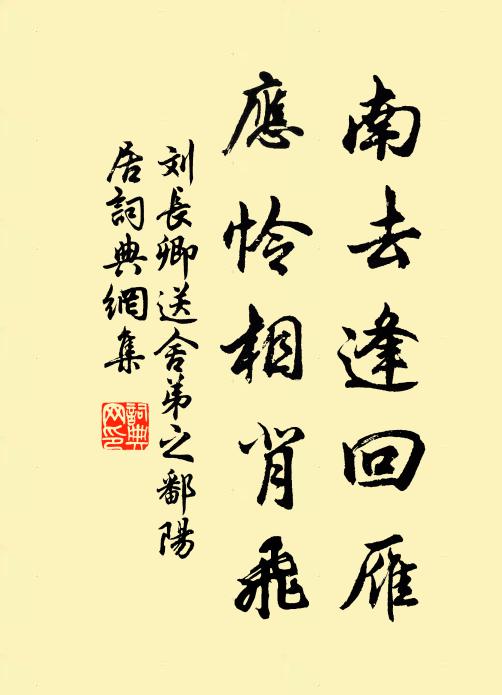 南去逢回雁
應怜相背飛
刘長卿送舍弟之鄱陽
居詞典網集
詞典网印